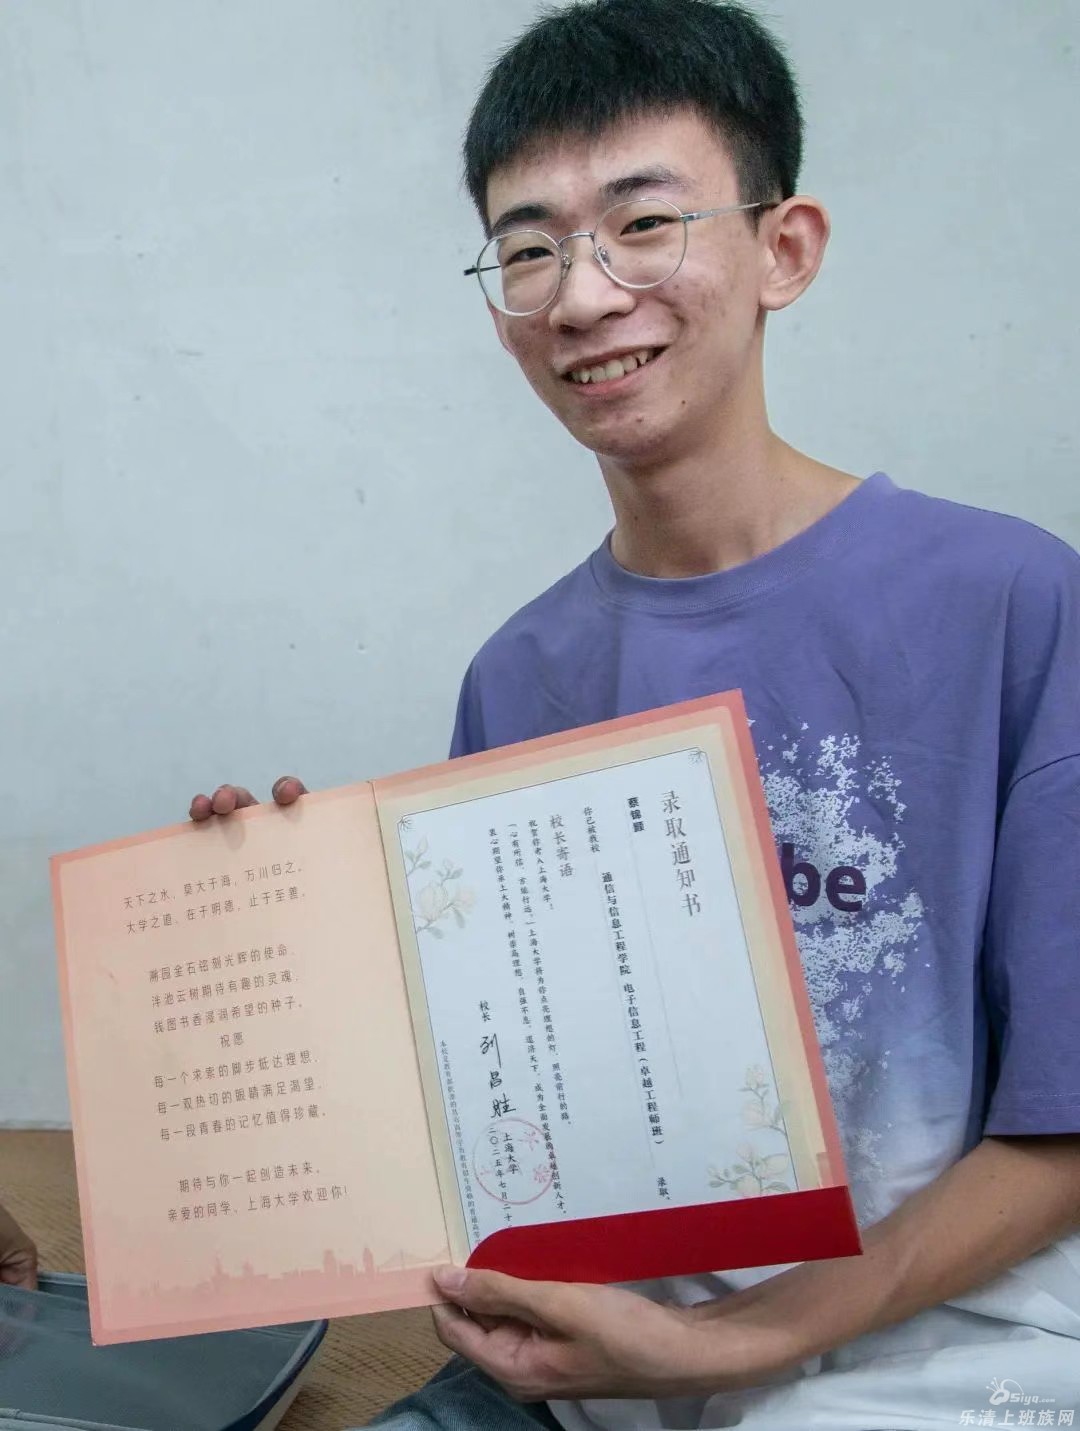 天下之水，莫大于海，万川归之。
大学之道，在于明德，止于至善。
溯园金石铭刻光辉的使命，
泮池云树期待有趣的灵魂，
钱图书香浸润希望的种子。
祝愿
每一个求索的脚步抵达理想，
每一双热切的眼睛满足渴望，
每一段青春的记忆值得珍藏。
期待与你一起创造未来。
亲爱的同学，上海大学欢迎你！
录取通知书
蔡锦颢
你已被我校 通信与信息工程学院 电子信息工程（卓越工程师班） 录取。
校长寄语
祝贺你考入上海大学！
“心有所信，方能行远。”上海大学将为你点亮理想的灯，照亮前行的路。
衷心期望你承上大精神，树崇高理想，自强不息，道济天下，成为全面发展的卓越创新人才。
校长 刘昌胜
上海大学
二〇二五年七月二十
本校是教育部批准的具有高等学历教育招生资格的普通高等学
be
Siyq.com
乐清上班族网